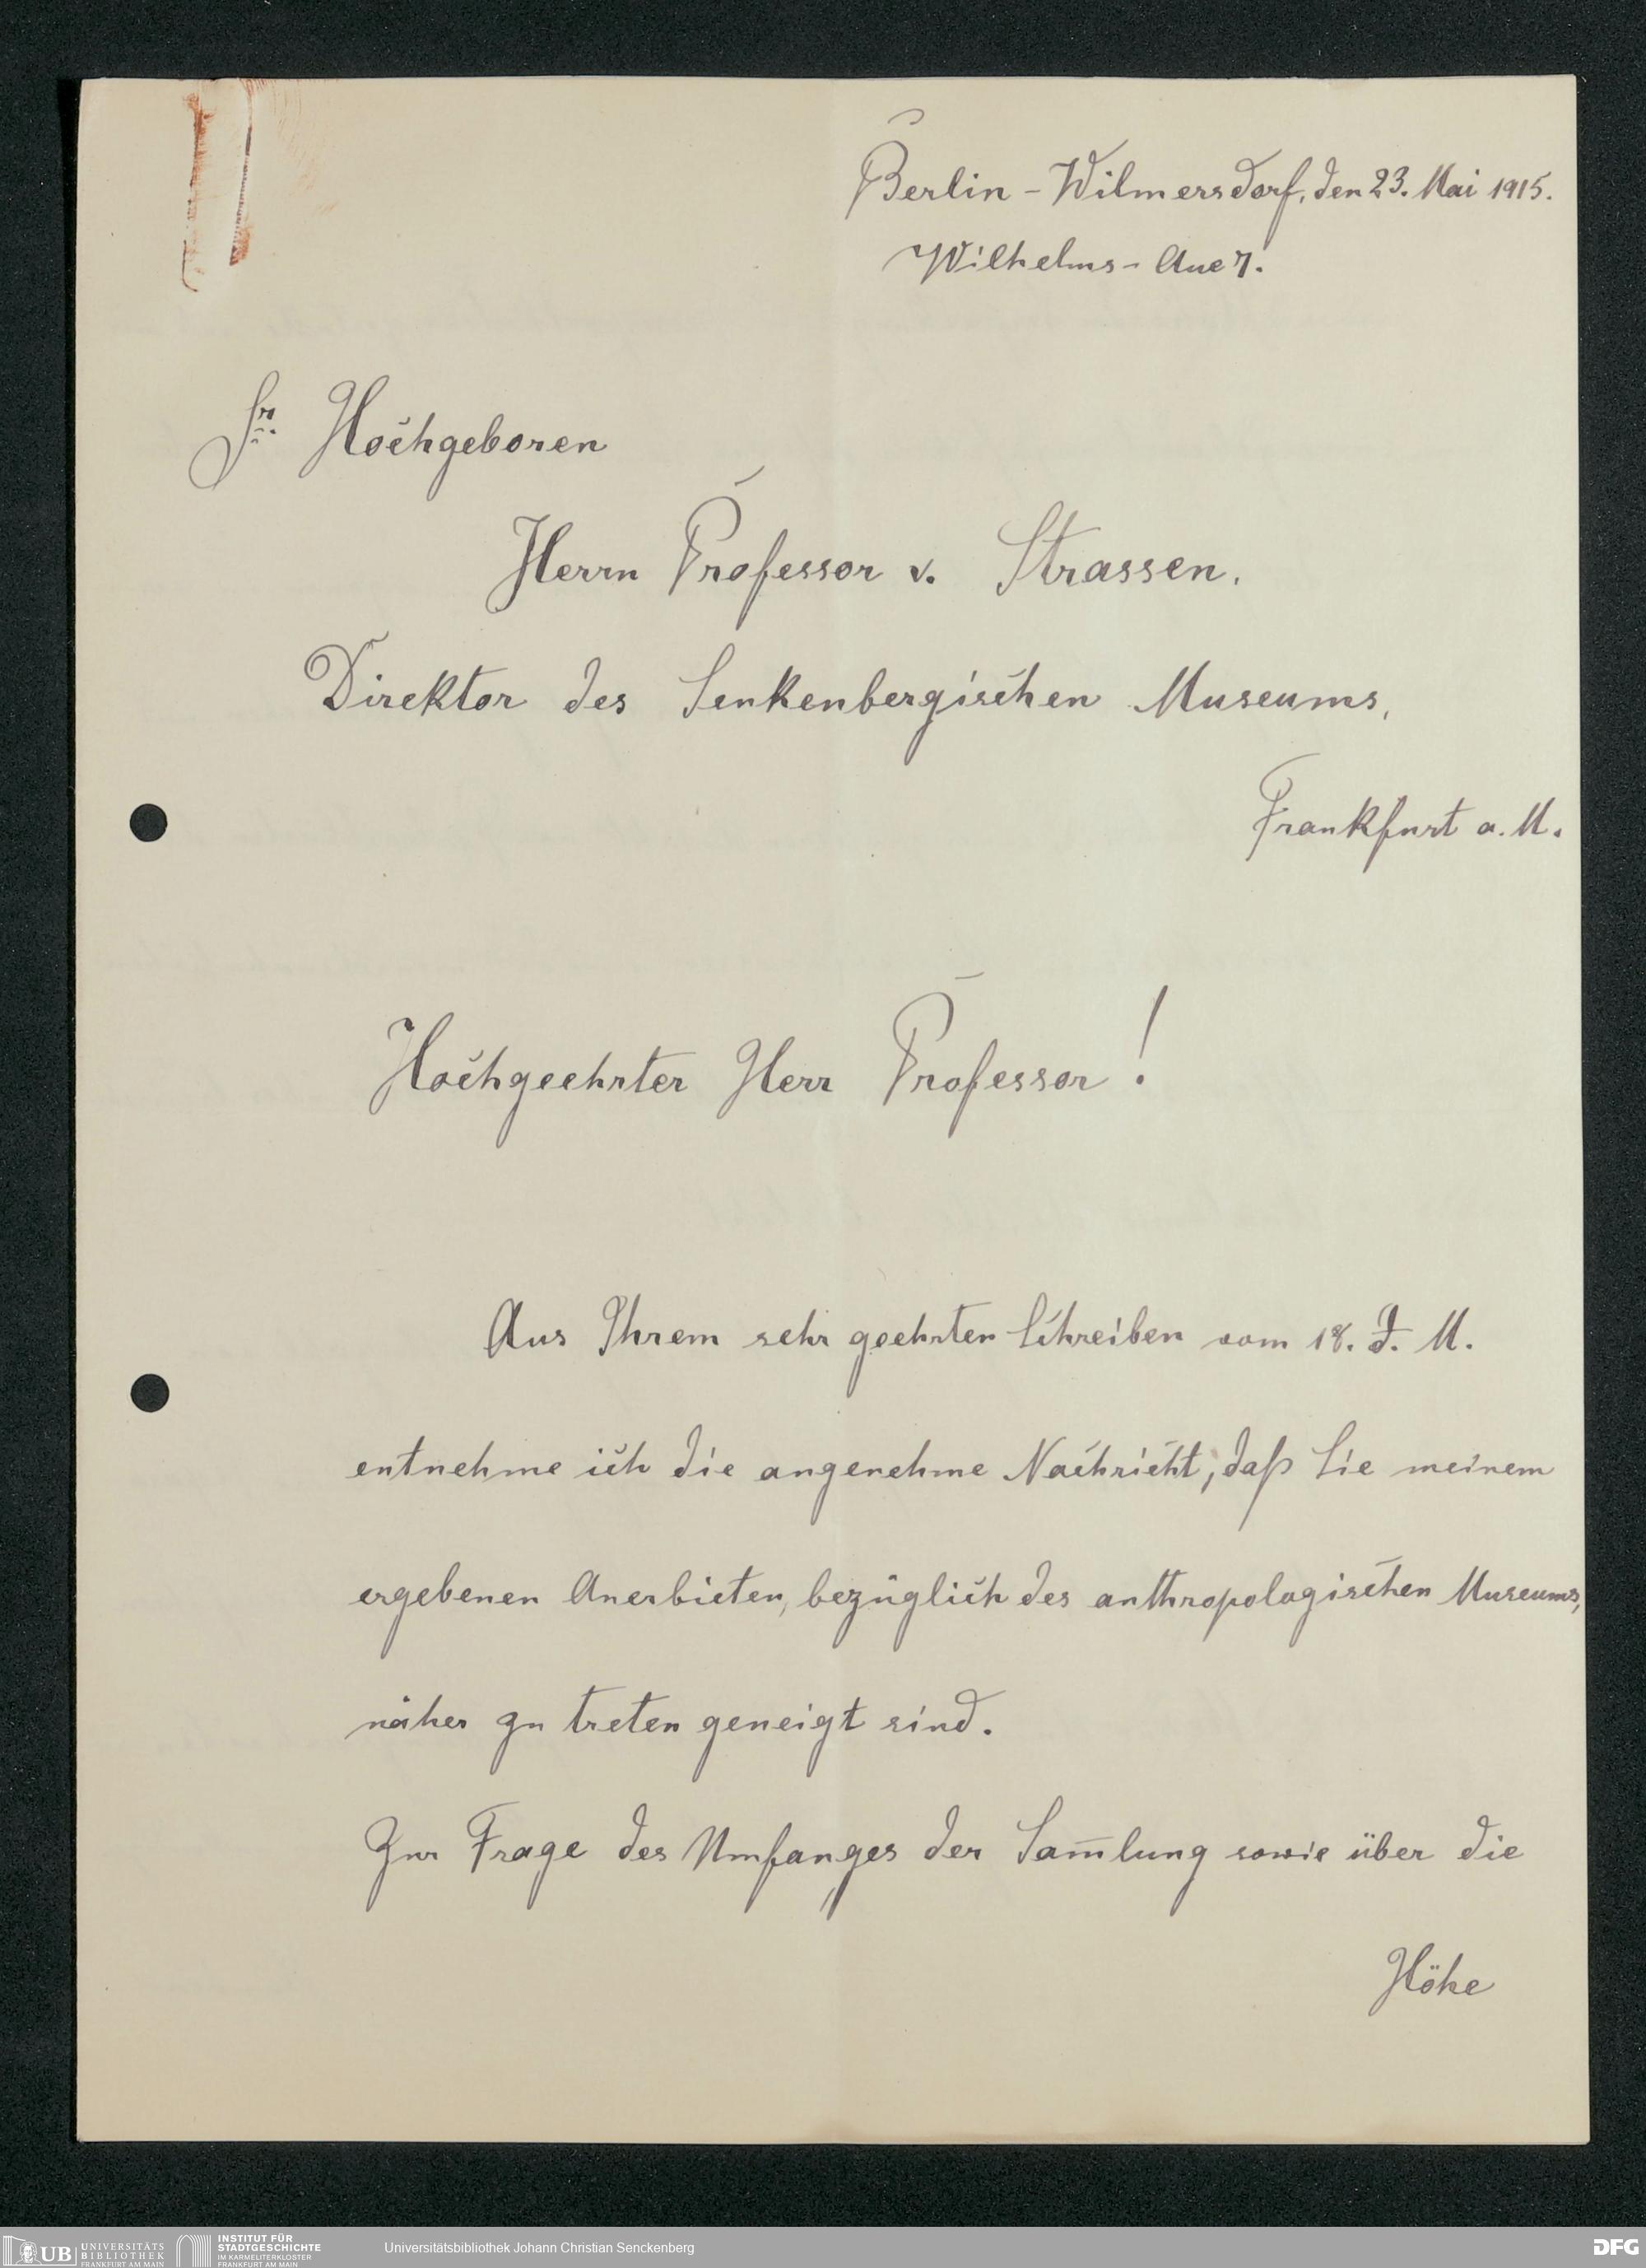 Berlin-Wilmersdorf, den 23. Mai 1915.
Wilhelms-Aue 7.
Sr. Hochgeboren
Herrn Professor v. Strassen,
Direktor des Senkenbergischen Museums,
Frankfurt a. M.
Hochgeehrter Herr Professor!
Aus Ihrem sehr geehrten Schreiben vom 18. d. M.
entnehme ich die angenehme Nachricht, daß Sie meinem
ergebenen Anerbieten, bezüglich des anthropologischen Museums,
näher zu treten geneigt sind.
Zur Frage des Umfanges der Sam̅lung sowie über die
Höhe
UB UNIVERSITÄTS BIBLIOTHEK FRANKFURT AM MAIN
INSTITUT FÜR STADTGESCHICHTE IM KARMELITERKLOSTER FRANKFURT AM MAIN
Universitätsbibliothek Johann Christian Senckenberg
DFG